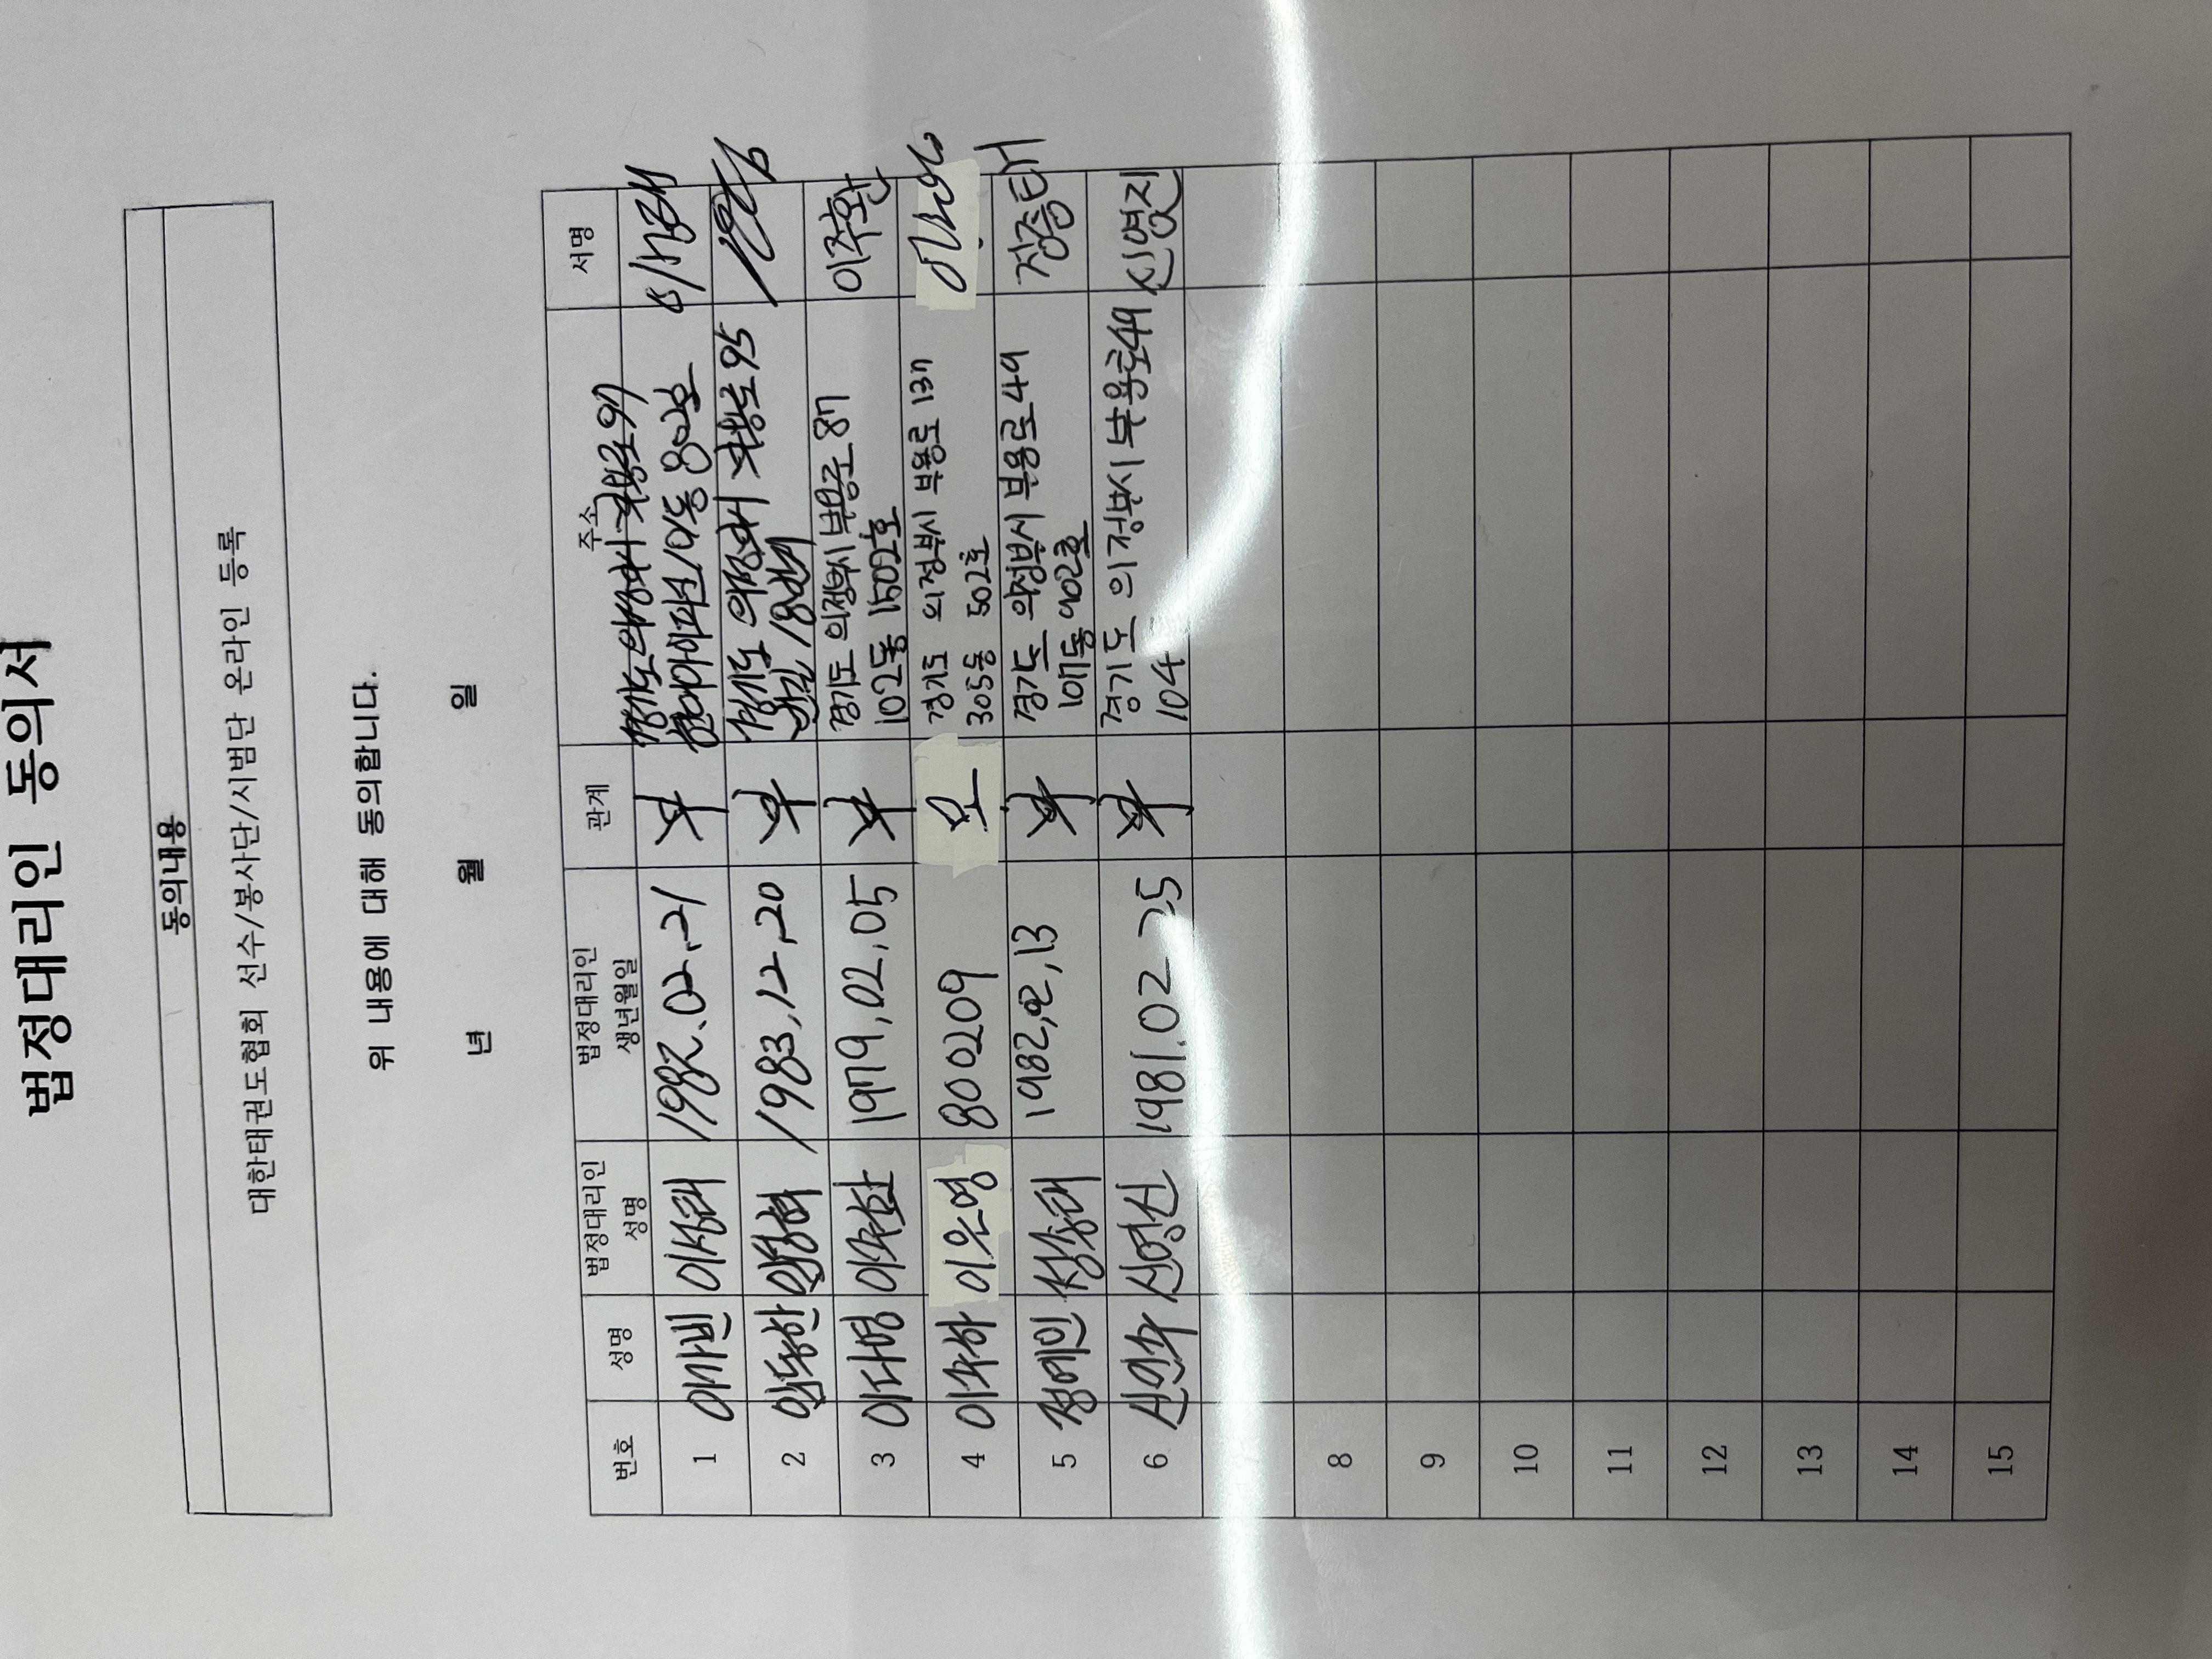 법정대리인 동의서
동의내용
대한태권도협회 선수/봉사단/시범단 온라인 등록
위 내용에 대해 동의합니다.
년 월 일
번호 성명 법정대리인 성명 법정대리인 생년월일 관계 주소 서명
1 이가빈 이성태 1982.02.21 부 경기도 의정부시 부용로 91
802호
2 임동한 1983.12.20 부 경기도 의정부시 부용로 95
3 이다명 이주환 1979.02.05 부 경기도 의정부시 부용로 87 이주환
102동 1502호
4 이주하 이은영 800209 모 경기도 의정부시 부용로 137
305동 502호
5 정예인 정종태 1982.02.13 부 경기도 의정부시 부용로 49 정종태
107동 902호
6 신연우 신영진 1981.02.25 부 경기도 의정부시 부용로 49 신영진
104
8
9
10
11
12
13
14
15